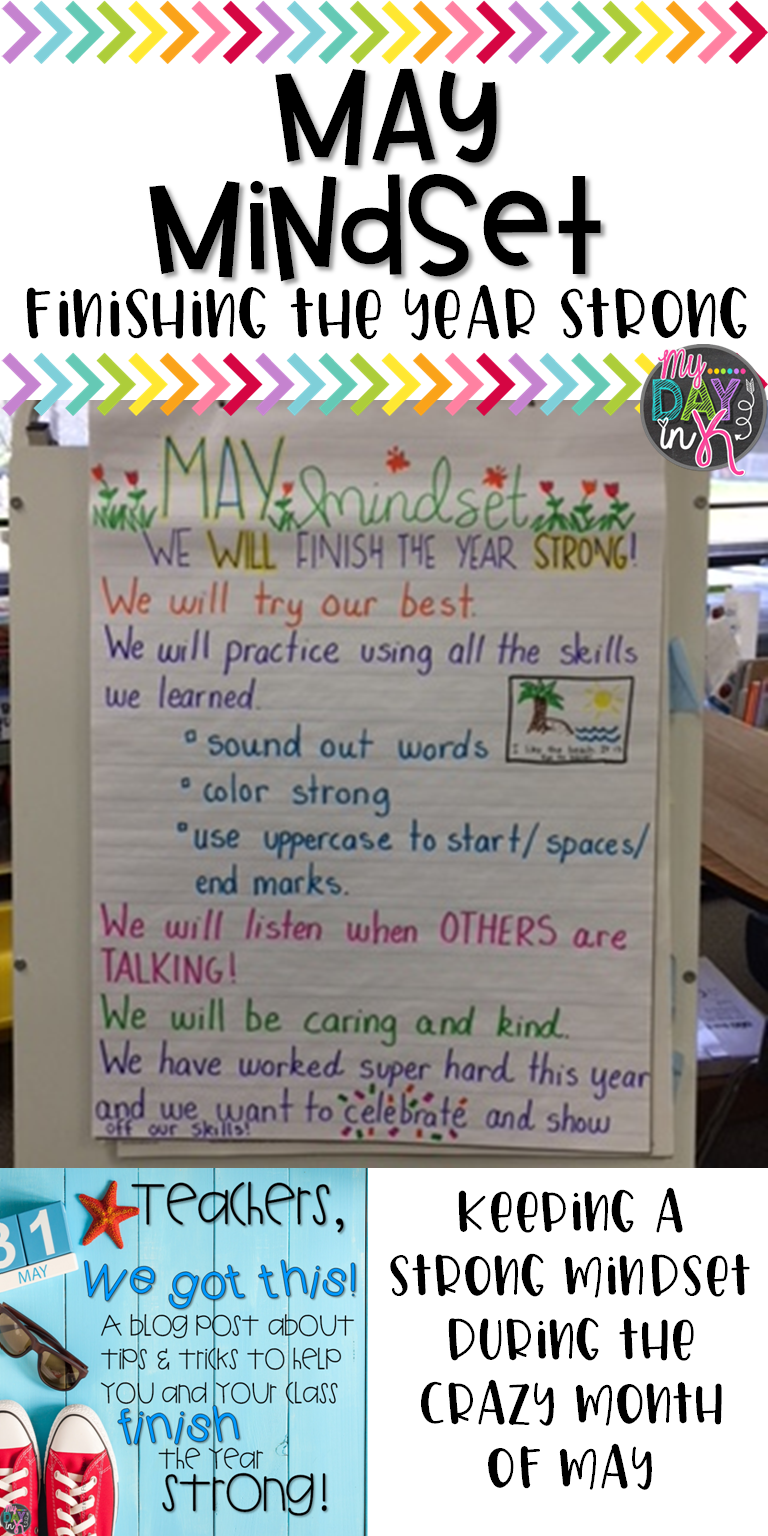 MAY
MiNdSet
FiniSHiNG tHE yEAR StRONG
My
DAY
in K
MAY mindset
WE WILL FINISH THE YEAR STRONG!
We will try our best.
We will practice using all the skills
we learned.
sound out words
color strong
use uppercase to start/spaces/
end marks.
We will listen when OTHERS are
TALKING!
We will be caring and kind.
We have worked super hard this year
and we want to celebrate and show
off our skills!
I like the beach. It is
31
MAY
Teachers,
We got this!
A blog post about
tips & tricks to help
you and your class
finish
the year
strong!
My
DAY
in K
KEEPING A
StRONG MiNDSEt
DURING tHE
CRAZY MONtH
OF MAY